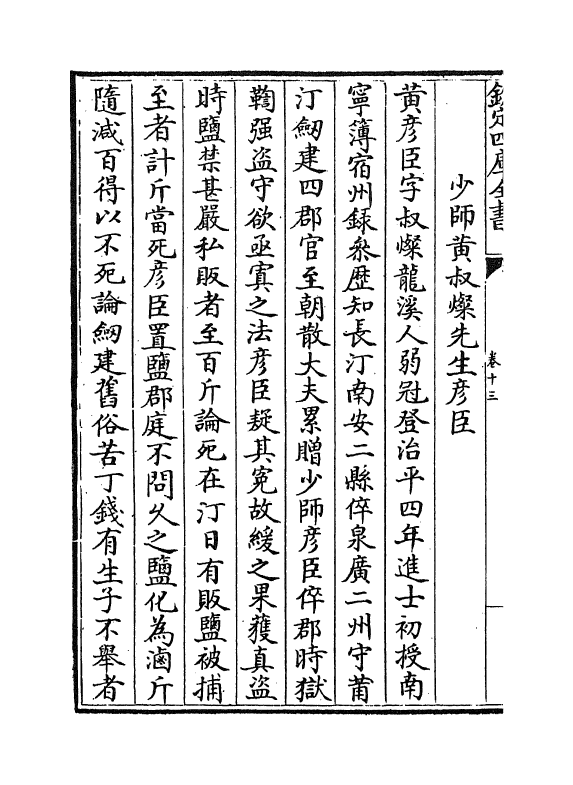 欽定四庫全書
卷十三
少師黃叔燦先生彦臣
黃彦臣字叔燦龍溪人弱冠登治平四年進士初授南
寧簿宿州録叅歴知長汀南安二縣倅泉廣二州守莆
汀劒建四郡官至朝散大夫累贈少師彦臣倅郡時獄
鞫强盗守欲亟寘之法彦臣疑其寃故緩之果獲真盗
時鹽禁甚嚴私販者至百斤論死在汀日有販鹽被捕
至者計斤當死彦臣置鹽郡庭不問久之鹽化為滷斤
隨减百得以不死論劒建舊俗苦丁錢有生子不舉者